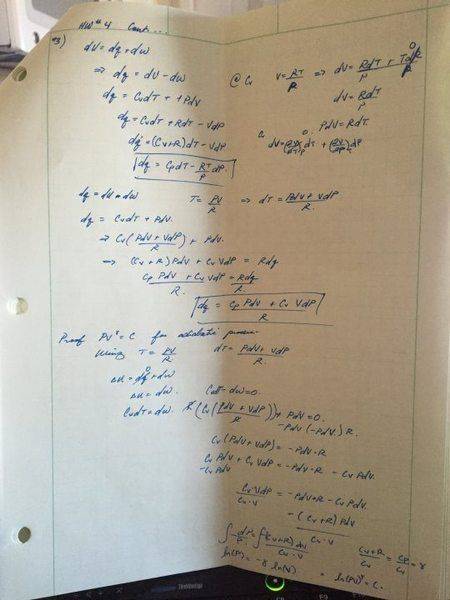 HW #4 Cont...
#3)
dU = dq + dw
⇒ dq = dU - dw
dq = CvdT + + PdV
dq = CvdT + RdT - VdP
dq = (Cv+R)dT - VdP
dq = CpdT - RT/P dP
@ Cv V = RT/P ⇒ dV = RdT/P +
dV = RdT/P
PdV = RdT
dq = dU - dw
T = PV/R ⇒ dT = PdV + VdP/R
dq = CvdT + PdV
⇒ Cv(PdV + VdP/R) + PdV
⇒ (Cv + R)PdV + CvVdP = Rdq
Cp PdV + Cv VdP/R = Rdq/R
dq = Cp PdV + Cv VdP/R
Proof PVˠ = C for adiabatic process
Using T = PV/R dT = PdV + VdP/R
ΔU = dq + dw
ΔU = dw
CvdT = dw
CvdT - dw = 0
(Cv(PdV + VdP/R)) + PdV = 0
-PdV (-PdV) R
Cv(PdV + VdP) = -PdV·R
Cv PdV + Cv VdP = -PdV·R - Cv PdV
-Cv PdV
Cv VdP/Cv·V = -PdV·R - Cv PdV
-(Cv+R) PdV/Cv·V
Cv+R/Cv = Cp/Cv = γ
ln(P) = -γ ln(V)